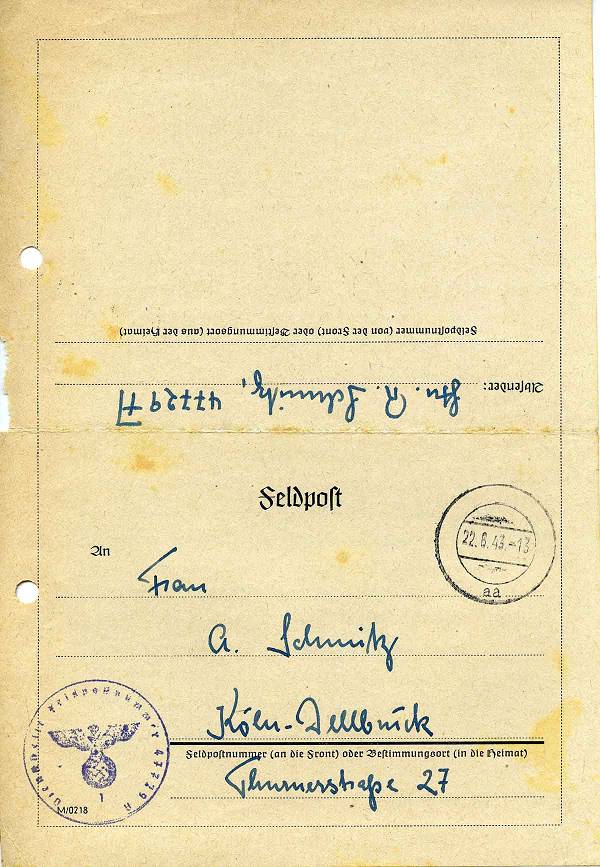 Feldpostnummer (von der Front) oder Bestimmungsort (aus der Heimat)
Absender:
R. Schmitz, 47729 A
Feldpost
22.6.43.-13
aa
An
Frau
A. Schmitz
Köln-Dellbrück
Feldpostnummer (an die Front) oder Bestimmungsort (in die Heimat)
Thurnerstraße 27
Dienststelle Feldpostnummer 47729 A
1
M/0218